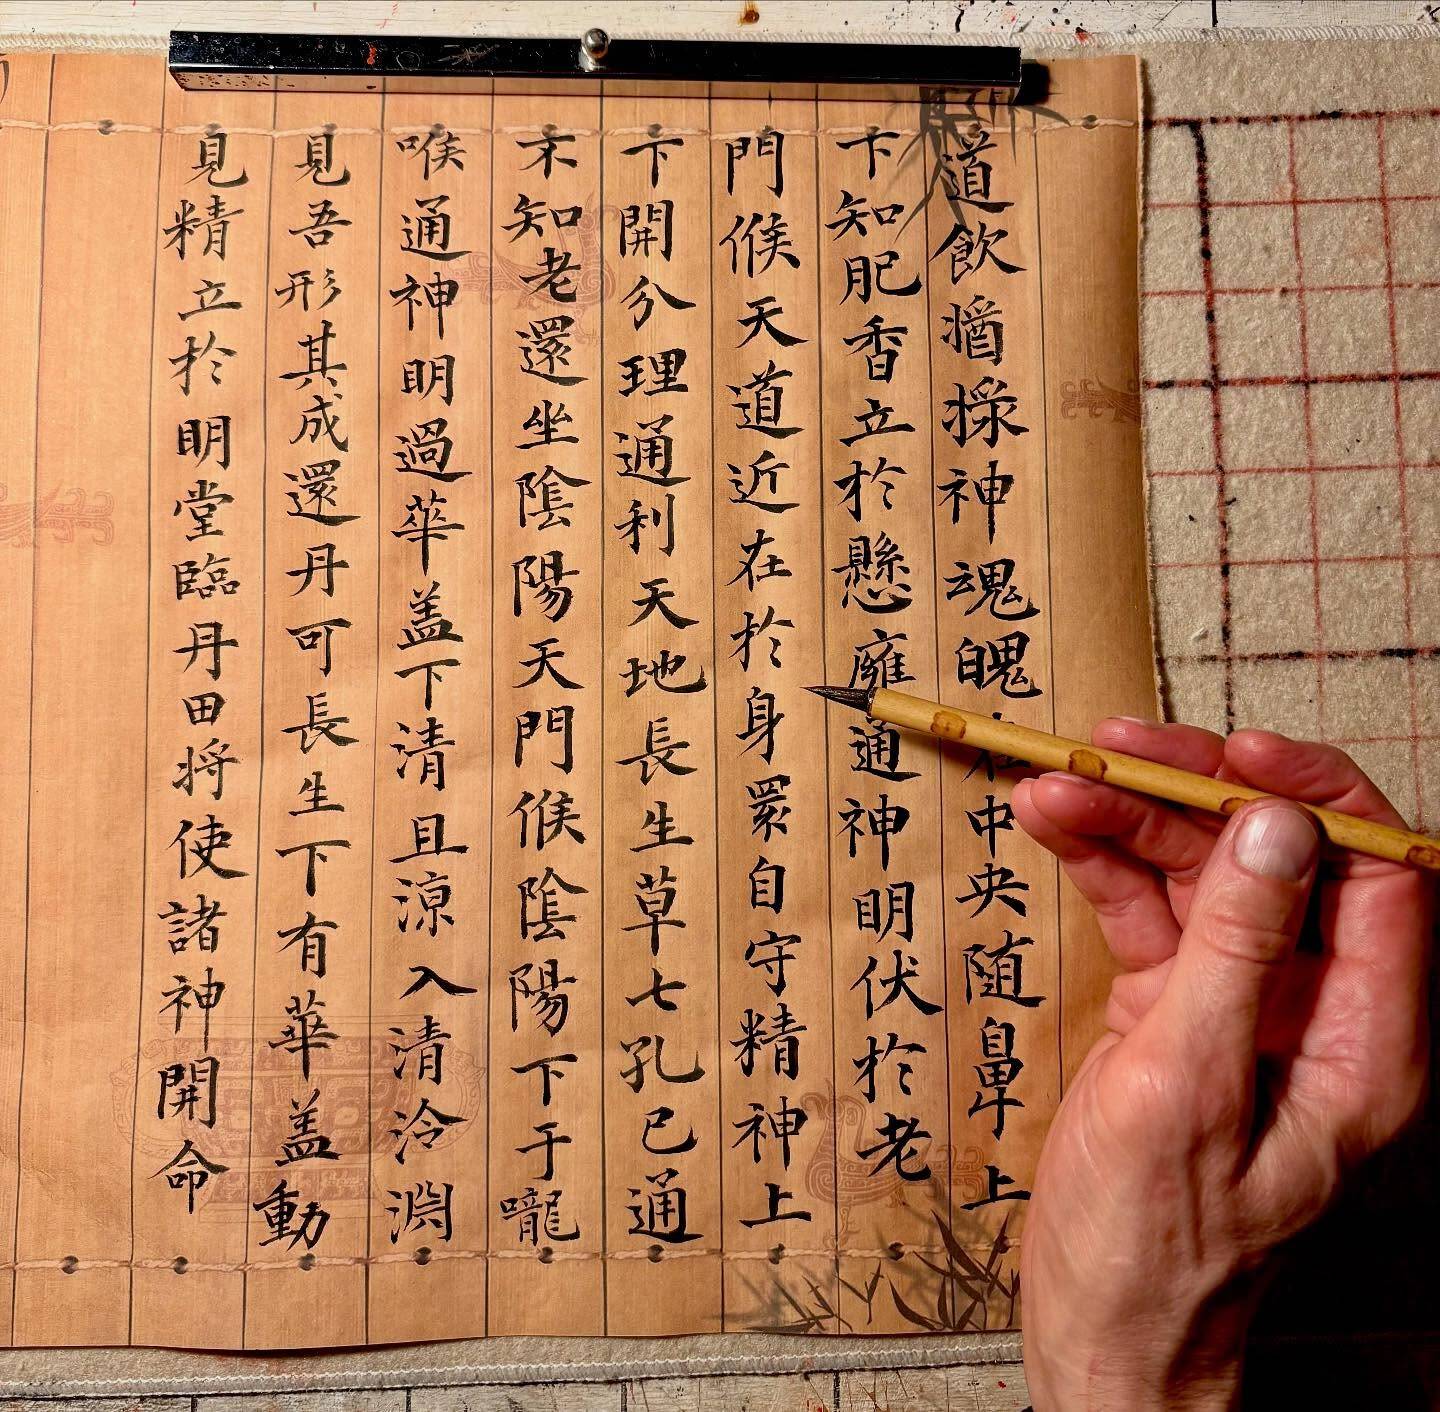 道飲酱採神魂魄在中央随鼻上
下知肥香立於懸癕通神明伏於老
門候天道近在於身還自守精神上
下開分理通利天地長生草七孔已通
不知老還坐陰陽天門候陰陽下于嚨
喉通神明過華盖下清且涼入清泠淵
見吾形其成還丹可長生下有華盖動
見精立於明堂臨丹田将使諸神開命